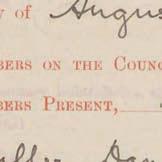 y of August
BERS ON THE COUNC
BERS PRESENT,